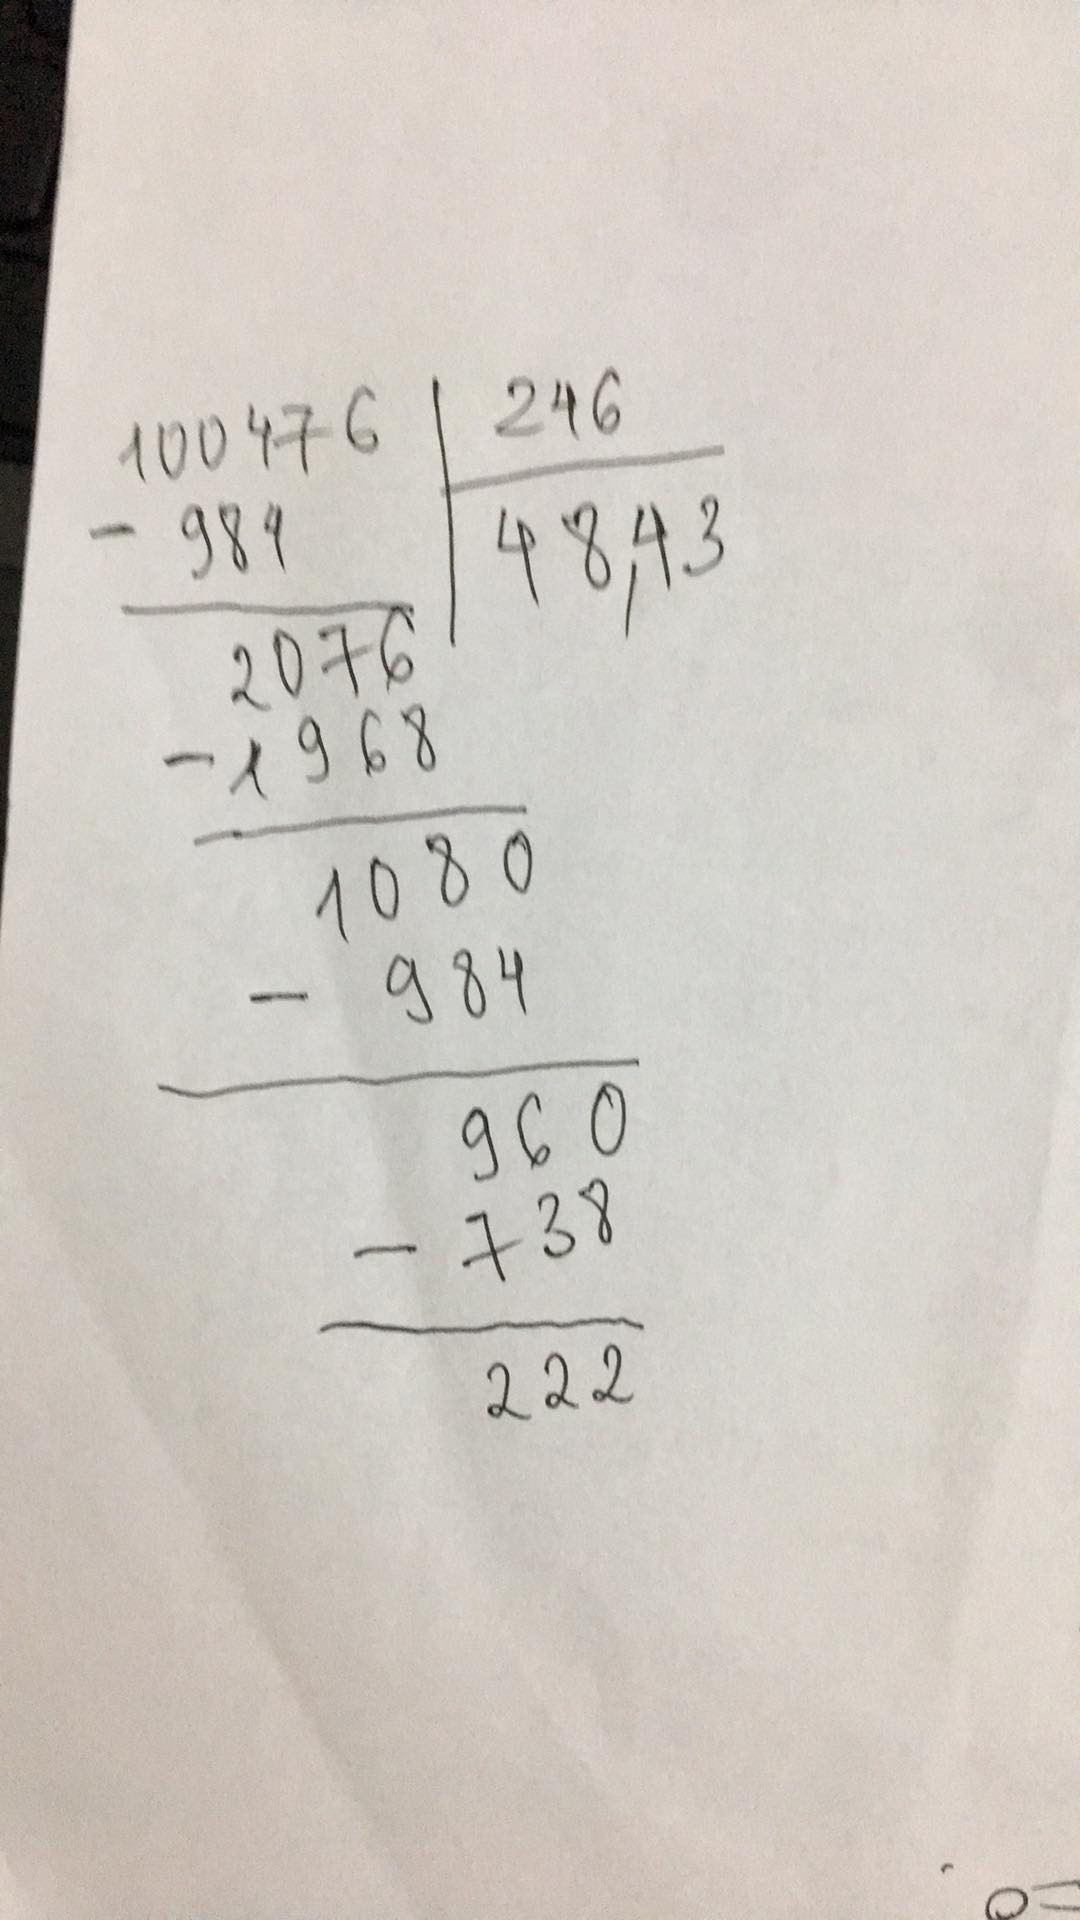 100476 246
- 984 48,43
2076
- 1968
1080
- 984
960
- 738
222
0=